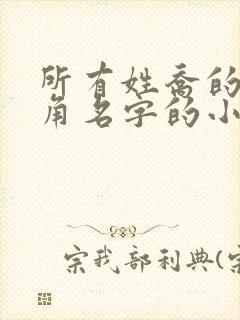 所有姓乔的
角名字的小
宗我部利典(宗